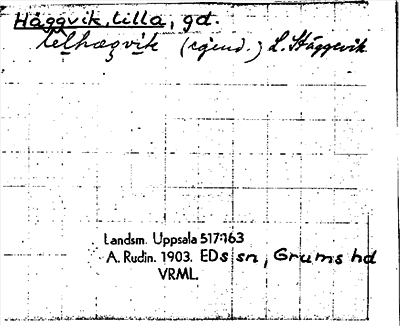 Häggvik, lilla, gd.
lelhægvik (egend.) L. Häggevik
Landsm. Uppsala 517:163
A. Rudin. 1903. EDs sn, Grums hd
VRML.